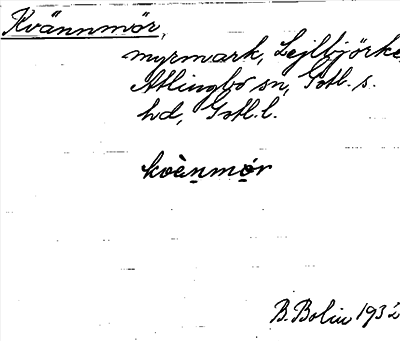 Kvännmör,
myrmark, Lejlbjörke,
Atlingbo sn, Gotl. s.
hd, Gotl. l.
kvènmór
B. Bolin 1932